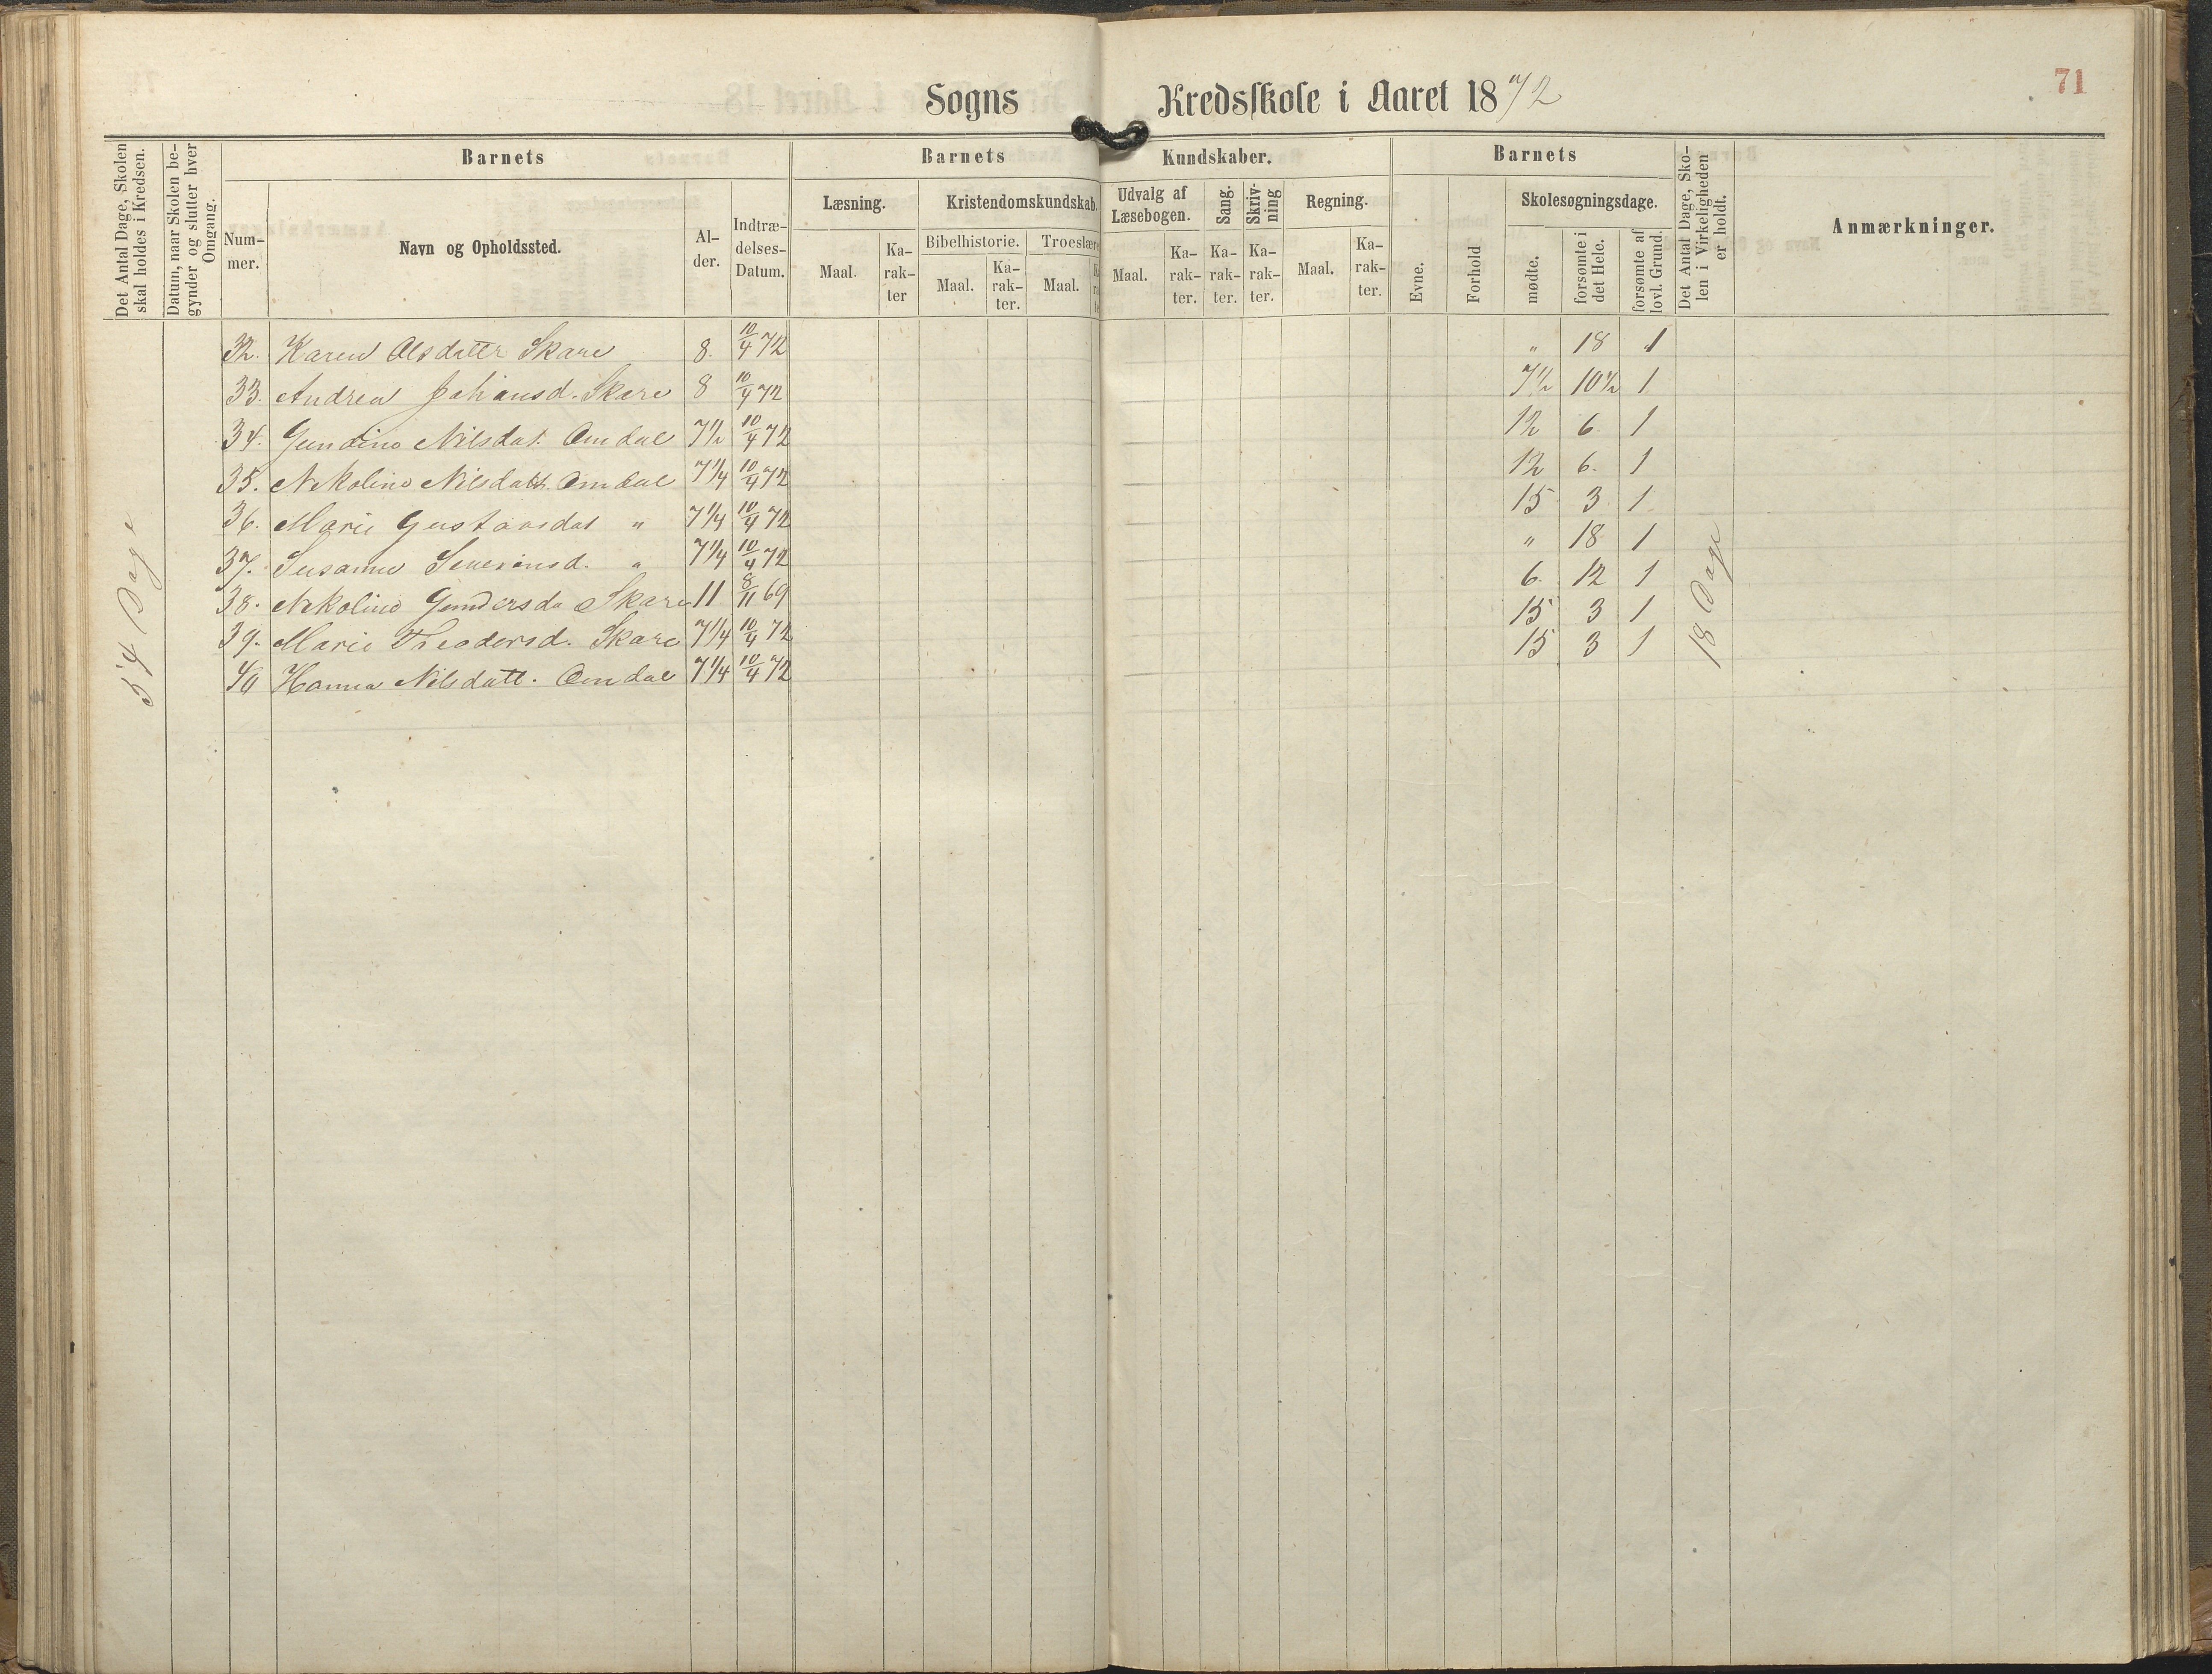 71
Sogns Kredsskole i Aaret 1872
Det Antal Dage, Skolen skal holdes i Kredsen.
Datum, naar Skolen begynder og slutter hver Omgang.
Barnets
Num-
mer.
Navn og Opholdssted.
Al-
der.
Indtræ-
delses-
Datum.
Barnets Kundskaber.
Læsning.
Maal.
Ka-
rak-
ter
Kristendomskundskab.
Bibelhistorie.
Maal.
Ka-
rak-
ter.
Troeslære
Maal.
Udvalg af
Læsebogen.
Maal.
Ka-
rak-
ter.
Sang.
Ka-
rak-
ter.
Skriv-
ning
Ka-
rak-
ter.
Regning.
Maal.
Ka-
rak-
ter.
Barnets
Evne.
Forhold
Skolesøgningsdage.
mødte.
forsømte i
det Hele.
forsømte af
lovl. Grund.
Det Antal Dage, Sko-
len i Virkeligheden
er holdt.
Anmærkninger.
54 Dage
32. Karen Olsdattr Skare 8. 10/4 72 " 18 1
33. Andrea Johansd. Skare 8 10/4 72 7½ 10½ 1
34. Gundine Nilsdat. Omdal 7½ 10/4 72 12 6. 1
35. Nikoline Nilsdatt. Omdal 7¼ 10/4 72 12 6. 1
36. Marie Gustavsdat " 7¼ 10/4 72 15 3 1
37. Susanne Severinsd. " 7¼ 10/4 72 " 18 1
38. Nikoline Gundersda Skare 11 8/11 69 6. 12 1
39. Marie Theodorsd. Skare 7¼ 10/4 72 15 3 1
40 Hanna Nilsdatt. Omdal 7¼ 10/4 72 15 3 1
18 Dage